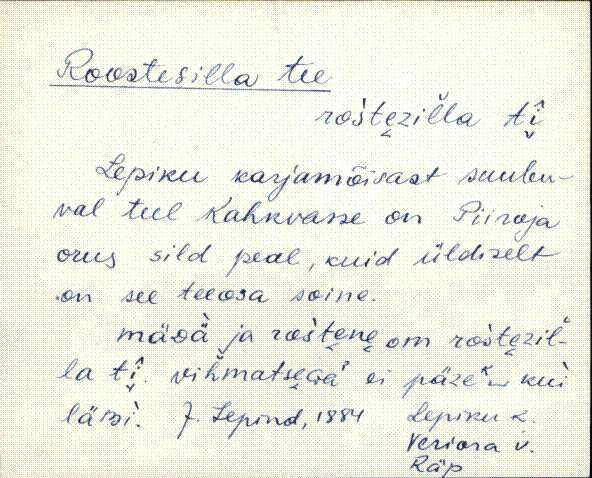 Roostesilla tee
rośtẹzil̆la tî̬
Lepiku karjamõisast suubu-
val teel Kahkvasse on Piiroja
orus sild peal, kuid üldiselt
on see teeosa soine.
ja rośtẹnẹ om rośtẹzil̆-
la tî̬. ei kui
J. Lepind, 1984 Lepiku k.
Veriora v.
Räp